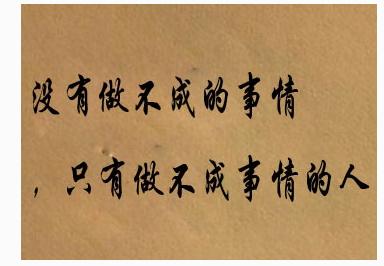 没有做不成的事情
，只有做不成事情的人